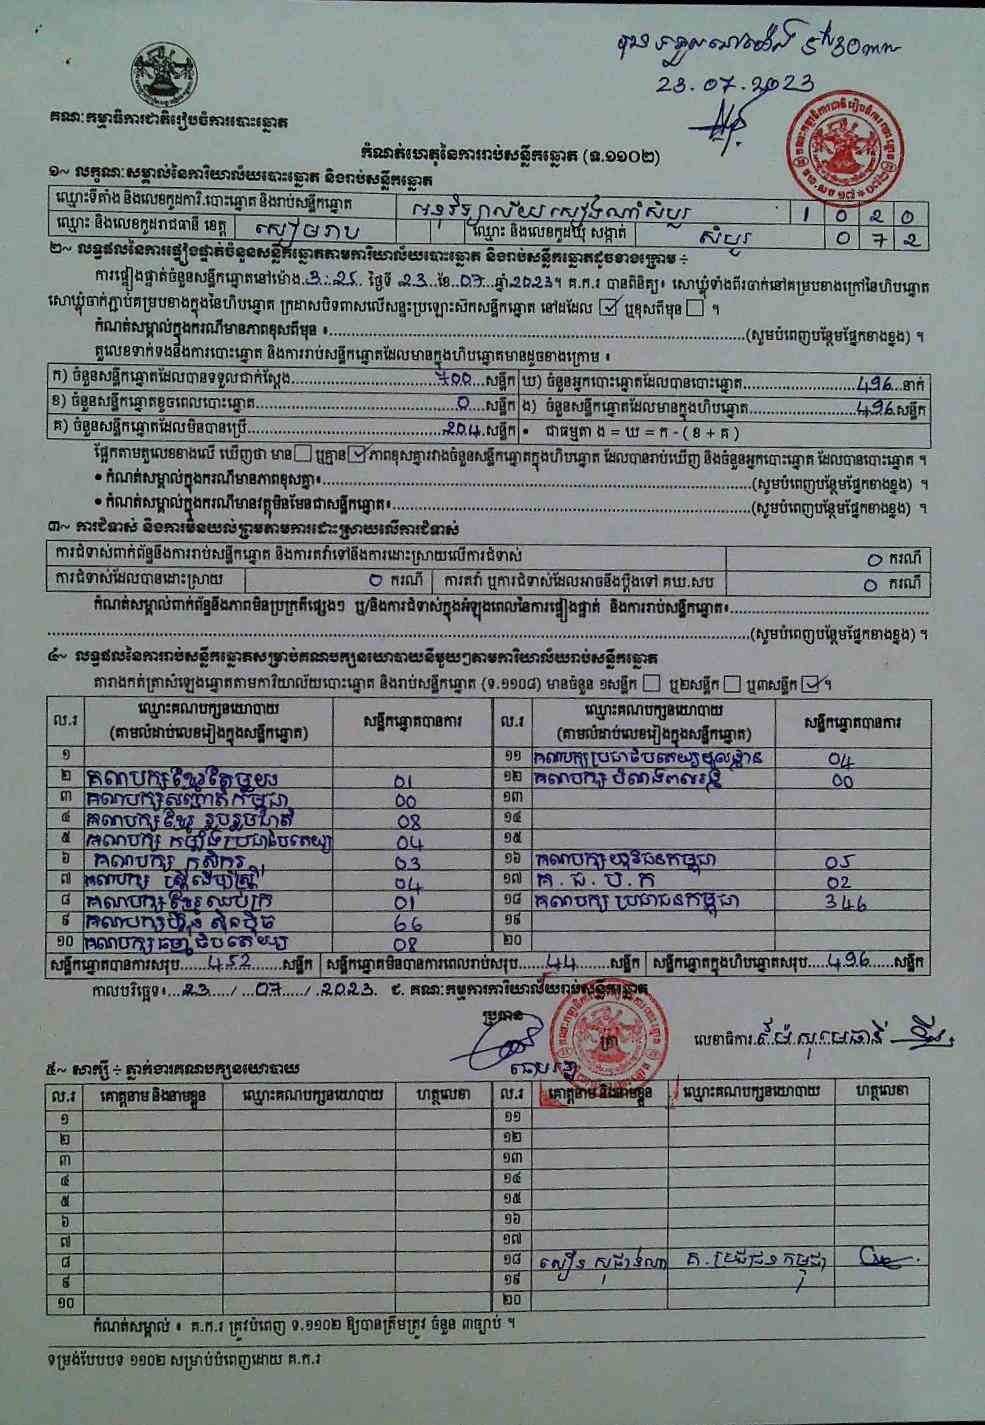 23.07.2023
គណៈកម្មាធិការជាតិរៀបចំការបោះឆ្នោត
កំណត់ហេតុនៃការរាប់សន្លឹកឆ្នោត (ទ.១១០២)
១~ លក្ខណៈសម្គាល់នៃការិយាល័យបោះឆ្នោត និងរាប់សន្លឹកឆ្នោត
ឈ្មោះទីតាំង និងលេខកូដការិ.បោះឆ្នោត និងរាប់សន្លឹកឆ្នោត 1 0 2 0
ឈ្មោះ និងលេខកូដរាជធានី ខេត្ត សៀមរាប ឈ្មោះ និងលេខកូដឃុំ សង្កាត់ សំបួរ 0 7 2
២~ លទ្ធផលនៃការផ្ទៀងផ្ទាត់ចំនួនសន្លឹកឆ្នោតតាមការិយាល័យបោះឆ្នោត និងរាប់សន្លឹកឆ្នោតដូចខាងក្រោម ÷
ការផ្ទៀងផ្ទាត់ចំនួនសន្លឹកឆ្នោតនៅម៉ោង 3:25 ថ្ងៃទី 23 ខែ 07 ឆ្នាំ 2023។ គ.ក.រ បានពិនិត្យ៖ សោឃ្លុំទាំងពីរចាក់នៅគម្របខាងក្រៅនៃហិបឆ្នោត
សោឃ្លុំចាក់ភ្ជាប់គម្របខាងក្នុងនៃហិបឆ្នោត ក្រដាសបិទពាសលើសន្ទះប្រឡោះស៊កសន្លឹកឆ្នោត នៅដដែល ☑ ឬខុសពីមុន ☐ ។
កំណត់សម្គាល់ក្នុងករណីមានភាពខុសពីមុន ៖ (សូមបំពេញបន្ថែមផ្នែកខាងខ្នង) ។
តួលេខទាក់ទងនឹងការបោះឆ្នោត និងការរាប់សន្លឹកឆ្នោតដែលមានក្នុងហិបឆ្នោតមានដូចខាងក្រោម ៖
ក) ចំនួនសន្លឹកឆ្នោតដែលបានទទួលជាក់ស្តែង 700 សន្លឹក ឃ) ចំនួនអ្នកបោះឆ្នោតដែលបានបោះឆ្នោត 496 នាក់
ខ) ចំនួនសន្លឹកឆ្នោតខូចពេលបោះឆ្នោត 0 សន្លឹក ង) ចំនួនសន្លឹកឆ្នោតដែលមានក្នុងហិបឆ្នោត 496 សន្លឹក
គ) ចំនួនសន្លឹកឆ្នោតដែលមិនបានប្រើ 204 សន្លឹក • ជាធម្មតា ង = ឃ = ក - ( ខ + គ )
ផ្អែកតាមតួលេខខាងលើ ឃើញថា មាន ☐ ឬគ្មាន ☑ ភាពខុសគ្នារវាងចំនួនសន្លឹកឆ្នោតក្នុងហិបឆ្នោត ដែលបានរាប់ឃើញ និងចំនួនអ្នកបោះឆ្នោត ដែលបានបោះឆ្នោត ។
• កំណត់សម្គាល់ក្នុងករណីមានភាពខុសគ្នា៖ (សូមបំពេញបន្ថែមផ្នែកខាងខ្នង) ។
• កំណត់សម្គាល់ក្នុងករណីមានវត្ថុមិនមែនជាសន្លឹកឆ្នោត៖ (សូមបំពេញបន្ថែមផ្នែកខាងខ្នង) ។
៣~ ការជំទាស់ និងការមិនយល់ព្រមតាមការដោះស្រាយលើការជំទាស់
ការជំទាស់ពាក់ព័ន្ធនឹងការរាប់សន្លឹកឆ្នោត និងការតវ៉ាទៅនឹងការដោះស្រាយលើការជំទាស់ 0 ករណី
ការជំទាស់ដែលបានដោះស្រាយ 0 ករណី ការតវ៉ា ឬការជំទាស់ដែលអាចនឹងប្តឹងទៅ គឃ.សប 0 ករណី
កំណត់សម្គាល់ពាក់ព័ន្ធនឹងភាពមិនប្រក្រតីផ្សេងៗ ឬ/និងការជំទាស់ក្នុងអំឡុងពេលនៃការផ្ទៀងផ្ទាត់ និងការរាប់សន្លឹកឆ្នោត៖
(សូមបំពេញបន្ថែមផ្នែកខាងខ្នង) ។
៤~ លទ្ធផលនៃការរាប់សន្លឹកឆ្នោតសម្រាប់គណបក្សនយោបាយនីមួយៗតាមការិយាល័យរាប់សន្លឹកឆ្នោត
តារាងកត់ត្រាសំឡេងឆ្នោតតាមការិយាល័យបោះឆ្នោត និងរាប់សន្លឹកឆ្នោត (ទ.១១០៨) មានចំនួន ១សន្លឹក ☐ ឬ២សន្លឹក ☐ ឬ៣សន្លឹក ☑ ។
ល.រ ឈ្មោះគណបក្សនយោបាយ (តាមលំដាប់លេខរៀងក្នុងសន្លឹកឆ្នោត) សន្លឹកឆ្នោតបានការ ល.រ ឈ្មោះគណបក្សនយោបាយ (តាមលំដាប់លេខរៀងក្នុងសន្លឹកឆ្នោត) សន្លឹកឆ្នោតបានការ
១ ១១ គណបក្សប្រជាធិបតេយ្យមូលដ្ឋាន 04
២ គណបក្សខ្មែរតែមួយ 01 ១២ គណបក្ស 00
៣ គណបក្សសញ្ជាតិកម្ពុជា 00 ១៣
៤ គណបក្សខ្មែររួបរួមជាតិ 08 ១៤
៥ គណបក្ស កម្លាំងប្រជាធិបតេយ្យ 04 ១៥
៦ គណបក្ស កសិករ 03 ១៦ គណបក្សយុវជនកម្ពុជា 05
៧ គណបក្ស ស្ត្រីដើម្បីស្ត្រី 04 ១៧ គ.ជ.ប.ក 02
៨ គណបក្សខ្មែរឈប់ក្រ 01 ១៨ គណបក្ស ប្រជាជនកម្ពុជា 346
៩ គណបក្សហ៊្វុនស៊ិនប៉ិច 66 ១៩
១០ គណបក្សធម្មាធិបតេយ្យ 08 ២០
សន្លឹកឆ្នោតបានការសរុប 452 សន្លឹក សន្លឹកឆ្នោតមិនបានការពេលរាប់សរុប 44 សន្លឹក សន្លឹកឆ្នោតក្នុងហិបឆ្នោតសរុប 496 សន្លឹក
កាលបរិច្ឆេទ៖ 23 / 07 / 2023. ជ. គណៈកម្មការការិយាល័យរាប់សន្លឹកឆ្នោត
ប្រធាន ត្រា លេខាធិការ
៥~ សាក្សី ÷ ភ្នាក់ងារគណបក្សនយោបាយ
ល.រ គោត្តនាម និងនាមខ្លួន ឈ្មោះគណបក្សនយោបាយ ហត្ថលេខា ល.រ គោត្តនាម និងនាមខ្លួន ឈ្មោះគណបក្សនយោបាយ ហត្ថលេខា
១ ១១
២ ១២
៣ ១៣
៤ ១៤
៥ ១៥
៦ ១៦
៧ ១៧
៨ ១៨ គ.ប្រជាជនកម្ពុជា
៩ ១៩
១០ ២០
កំណត់សម្គាល់ ៖ គ.ក.រ ត្រូវបំពេញ ទ.១១០២ ឱ្យបានត្រឹមត្រូវ ចំនួន ៣ច្បាប់ ។
ទម្រង់បែបបទ ១១០២ សម្រាប់បំពេញដោយ គ.ក.រ